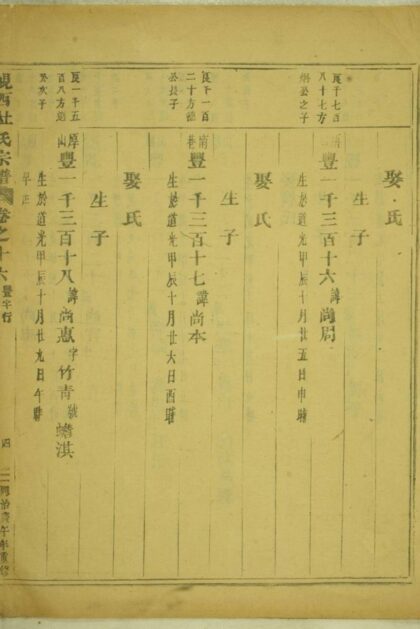 娶氏
良千七百
八十七方
公之子
豐一千三百十六諱尚
生於道光甲辰十月廿五日申時
生子
娶氏
良千一百
二十方德
公長子
南巷
豐一千三百十七諱尚本
生於道光甲辰十月廿六日酉時
生子
娶氏
良一千五
百八方
公次子
厚山
豐一千三百十八諱尚惠字竹青號蟾淇
生於道光甲辰十月廿九日午時
生子
杜氏宗譜卷之十六豐字行
四
治庚午年重修